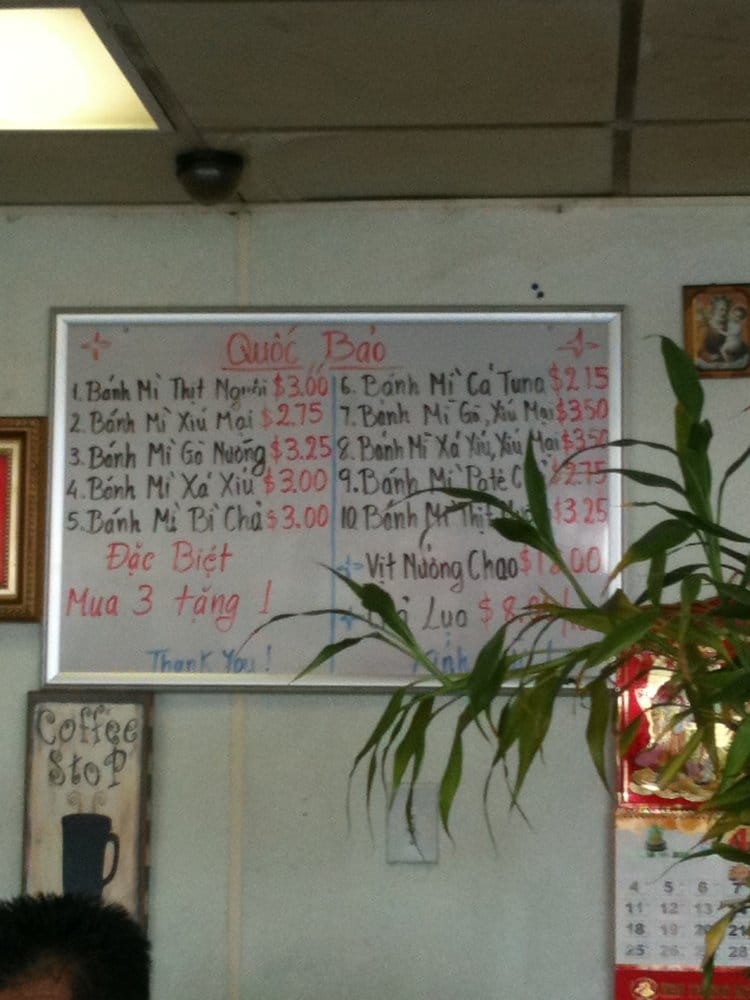 Quốc Bảo
1. Bánh Mì Thịt Nguội $3.00
2. Bánh Mì Xíu Mại $2.75
3. Bánh Mì Gà Nướng $3.25
4. Bánh Mì Xá Xíu $3.00
5. Bánh Mì Bì Chả $3.00
Đặc Biệt
Mua 3 tặng 1
Thank You!
6. Bánh Mì Cá Tuna $2.15
7. Bánh Mì Gà, Xíu Mại $3.50
8. Bánh Mì Xá Xíu, Xíu Mại $3.50
9. Bánh Mì Patê $2.75
10. Bánh Mì Thịt $3.25
Vịt Nướng Chao
Lụa
Coffee
Stop
4 5 6 7
11 12 13 14
18 19 20 21
25 26 28